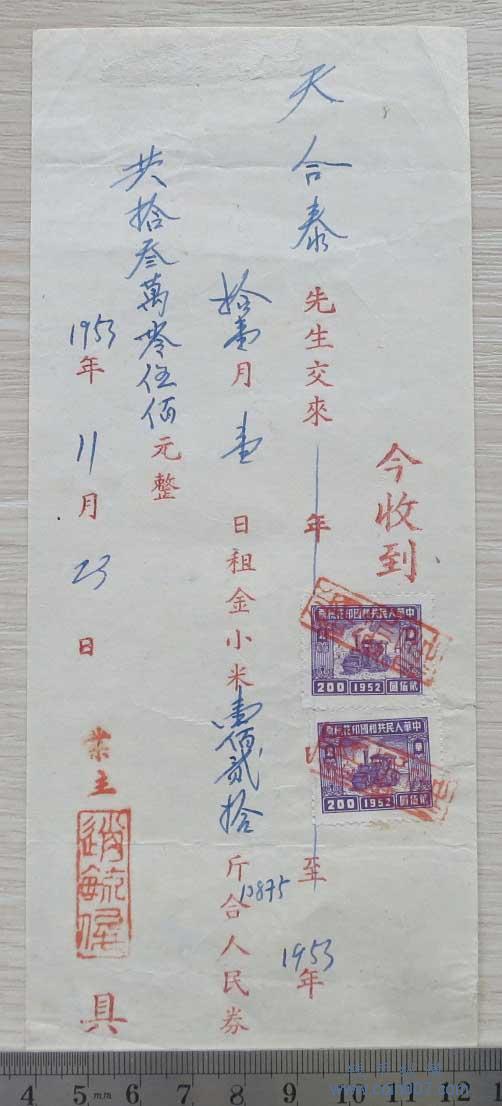 今收到
天合泰先生交來 年 至 1953年
拾壹月壹日租金小米壹佰貳拾斤合人民券
10875
共拾叁萬零伍佰元整
1953年 11月 23日
業主 具
中華人民共和國印花稅票
200 1952 貳佰圓
中華人民共和國印花稅票
200 1952 貳佰圓
4 5 mm 6 7 8 9 10 11 12